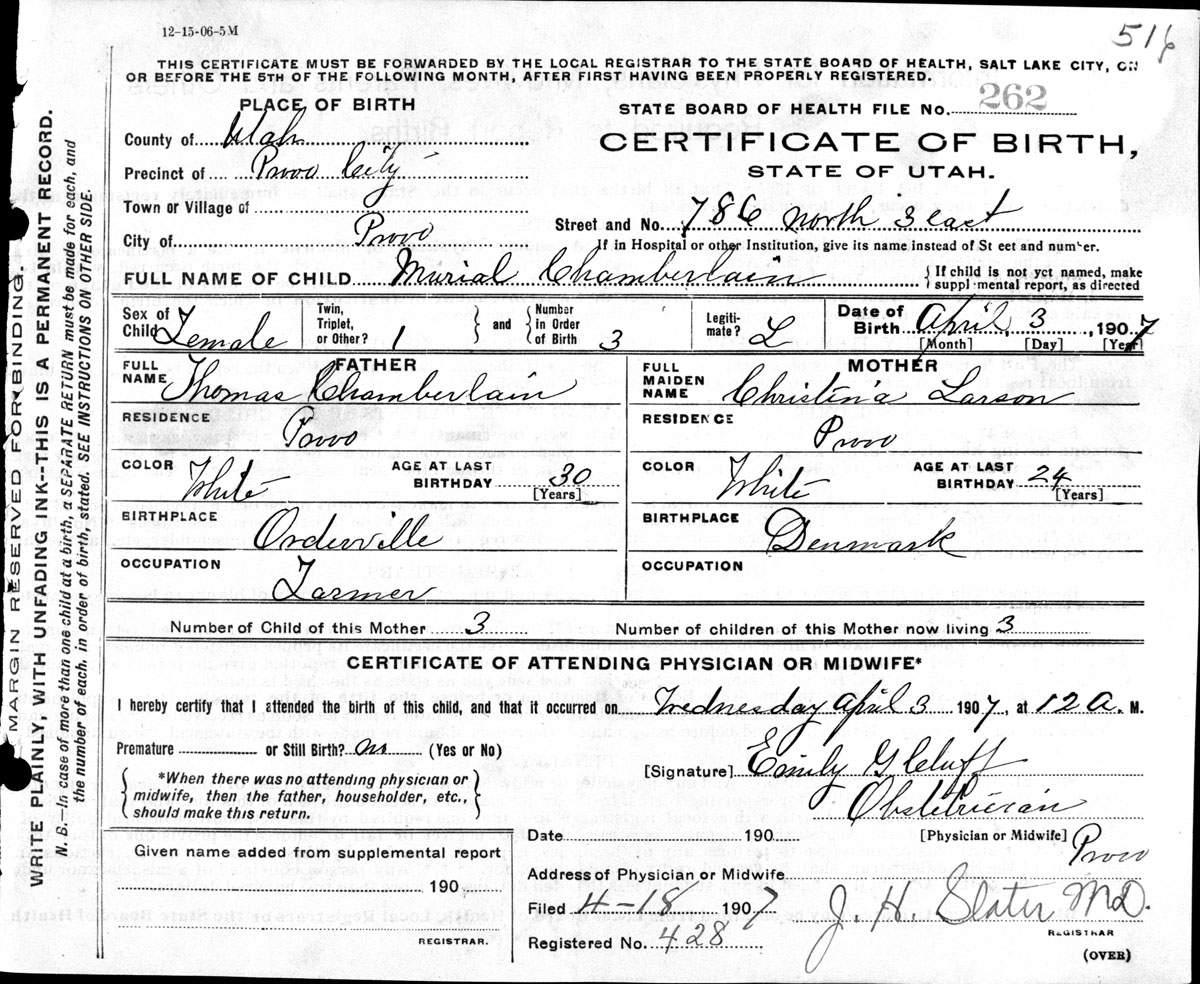 12-15-06-5M
516
THIS CERTIFICATE MUST BE FORWARDED BY THE LOCAL REGISTRAR TO THE STATE BOARD OF HEALTH, SALT LAKE CITY, ON
OR BEFORE THE 5TH OF THE FOLLOWING MONTH, AFTER FIRST HAVING BEEN PROPERLY REGISTERED.
PLACE OF BIRTH
STATE BOARD OF HEALTH FILE No. 262
County of Utah
CERTIFICATE OF BIRTH,
Precinct of Provo City
STATE OF UTAH.
Town or Village of
Street and No. 786 North 3 east
City of Provo
If in Hospital or other Institution, give its name instead of St eet and number.
FULL NAME OF CHILD Murial Chamberlain
If child is not yet named, make
suppl mental report, as directed
Sex of Child Female
Twin, Triplet, or Other? 1
and
Number in Order of Birth 3
Legiti-mate? L
Date of Birth April 3, 1907
[Month] [Day] [Year]
FATHER
FULL NAME Thomas Chamberlain
RESIDENCE
Provo
COLOR White
AGE AT LAST BIRTHDAY 30
[Years]
BIRTHPLACE
Orderville
OCCUPATION
Farmer
MOTHER
FULL MAIDEN NAME Christina Larson
RESIDENCE
Provo
COLOR White
AGE AT LAST BIRTHDAY 24
[Years]
BIRTHPLACE
Denmark
OCCUPATION
Number of Child of this Mother 3
Number of children of this Mother now living 3
CERTIFICATE OF ATTENDING PHYSICIAN OR MIDWIFE*
I hereby certify that I attended the birth of this child, and that it occurred on Wednesday April 3 1907, at 12 A. M.
Premature or Still Birth? no (Yes or No)
*When there was no attending physician or
midwife, then the father, householder, etc.,
should make this return.
[Signature] Emily G Cluff
Obstetrician
Date 190 [Physician or Midwife]
Address of Physician or Midwife Provo
Given name added from supplemental report
190
REGISTRAR.
Filed 4-18 1907 J. H. Slater MD.
REGISTRAR
Registered No. 428
(OVER)
MARGIN RESERVED FOR BINDING.
WRITE PLAINLY, WITH UNFADING INK-THIS IS A PERMANENT RECORD.
N. B.—In case of more than one child at a birth, a SEPARATE RETURN must be made for each, and
the number of each, in order of birth, stated. SEE INSTRUCTIONS ON OTHER SIDE.